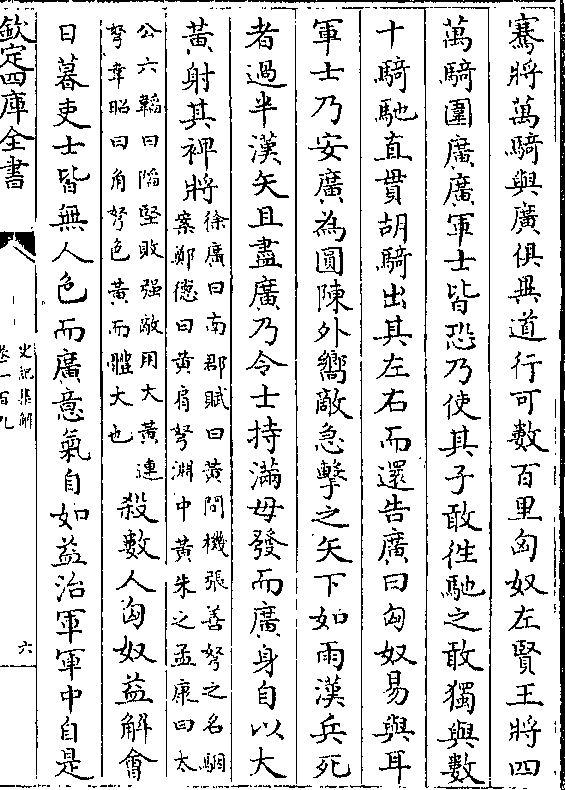 騫將萬騎與廣俱異道行可數百里匈奴左賢王將四
萬騎圍廣廣軍士皆恐乃使其子敢往馳之敢獨與數
十騎馳直貫胡騎出其左右而還告廣曰匈奴易與耳
軍士乃安廣為圓陳外嚮敵急擊之矢下如雨漢兵死
者過半漢矢且盡廣乃令士持滿毋發而廣身自以大
黃射其裨將
徐廣曰南郡賦曰黃間機張善弩之名駰
案鄭德曰黃肩弩淵中黃朱之孟康曰太
公六韜曰陷堅敗强敵用大黃連
弩韋昭曰角弩色黃而體大也
殺數人匈奴益解會
日暮吏士皆無人色而廣意氣自如益治軍軍中自是
欽定四庫全書
史記集解
卷一百九
六